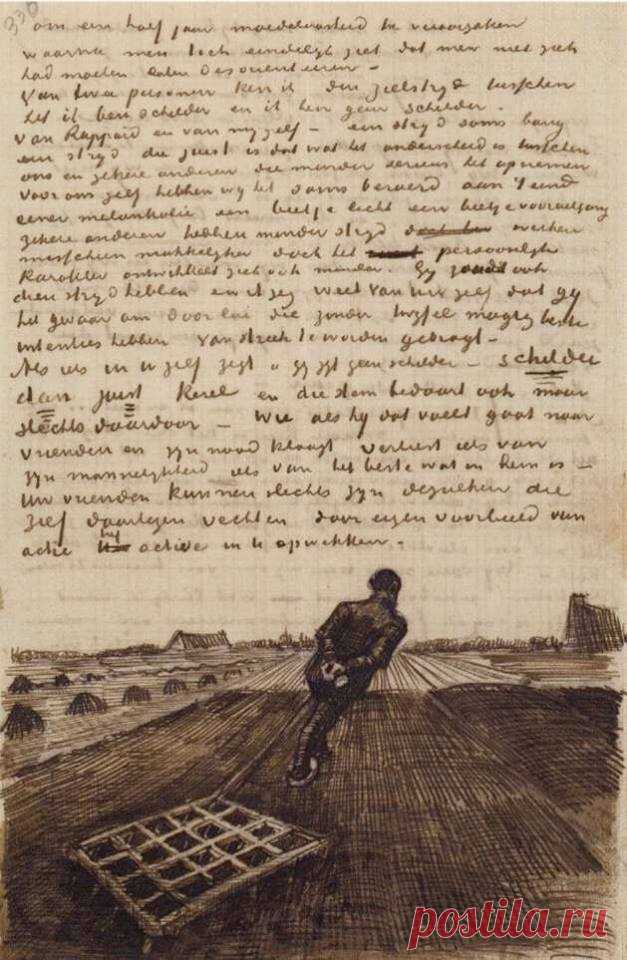 330
om een half jaar moedeloosheid te veroorzaken
waarna men toch eindelijk ziet dat men niet zich
had moeten laten desorienteeren –
Van twee personen ken ik den zielstrijd tusschen
het ik ben schilder en ik ben geen schilder.
Van Rappard en van mijzelf – een strijd soms bang
een strijd die juist is dat wat het onderscheid is tusschen
ons en zekere anderen die minder serieus het opnemen
voor ons zelf hebben wij het soms beroerd aan 't eind
eener melankolie een beetje licht een beetje vooruitgang
zekere anderen hebben minder strijd werken
misschien makkelijker doch het persoonlijk
karakter ontwikkelt zich ook minder. Gij zoudt ook
dien strijd hebben en ik zeg weet van Uw zelf dat gij
het gevaar om door lui die zonder twijfel beste
intenties hebben van streek te worden gebragt –
Als iets in U zelf zegt gij zijt geen schilder – schilder
dan juist kerel en die stem bedaart ook maar
slechts daardoor – Wie als hij dat voelt gaat naar
vrienden en zijn nood klaagt verliest iets van
zijn mannelijkheid iets van het beste wat in hem is –
Uw vrienden kunnen slechts zijn dezulken die
zelf daartegen vechten door eigen voorbeeld van
actie het active in U opwekken.
postila.ru